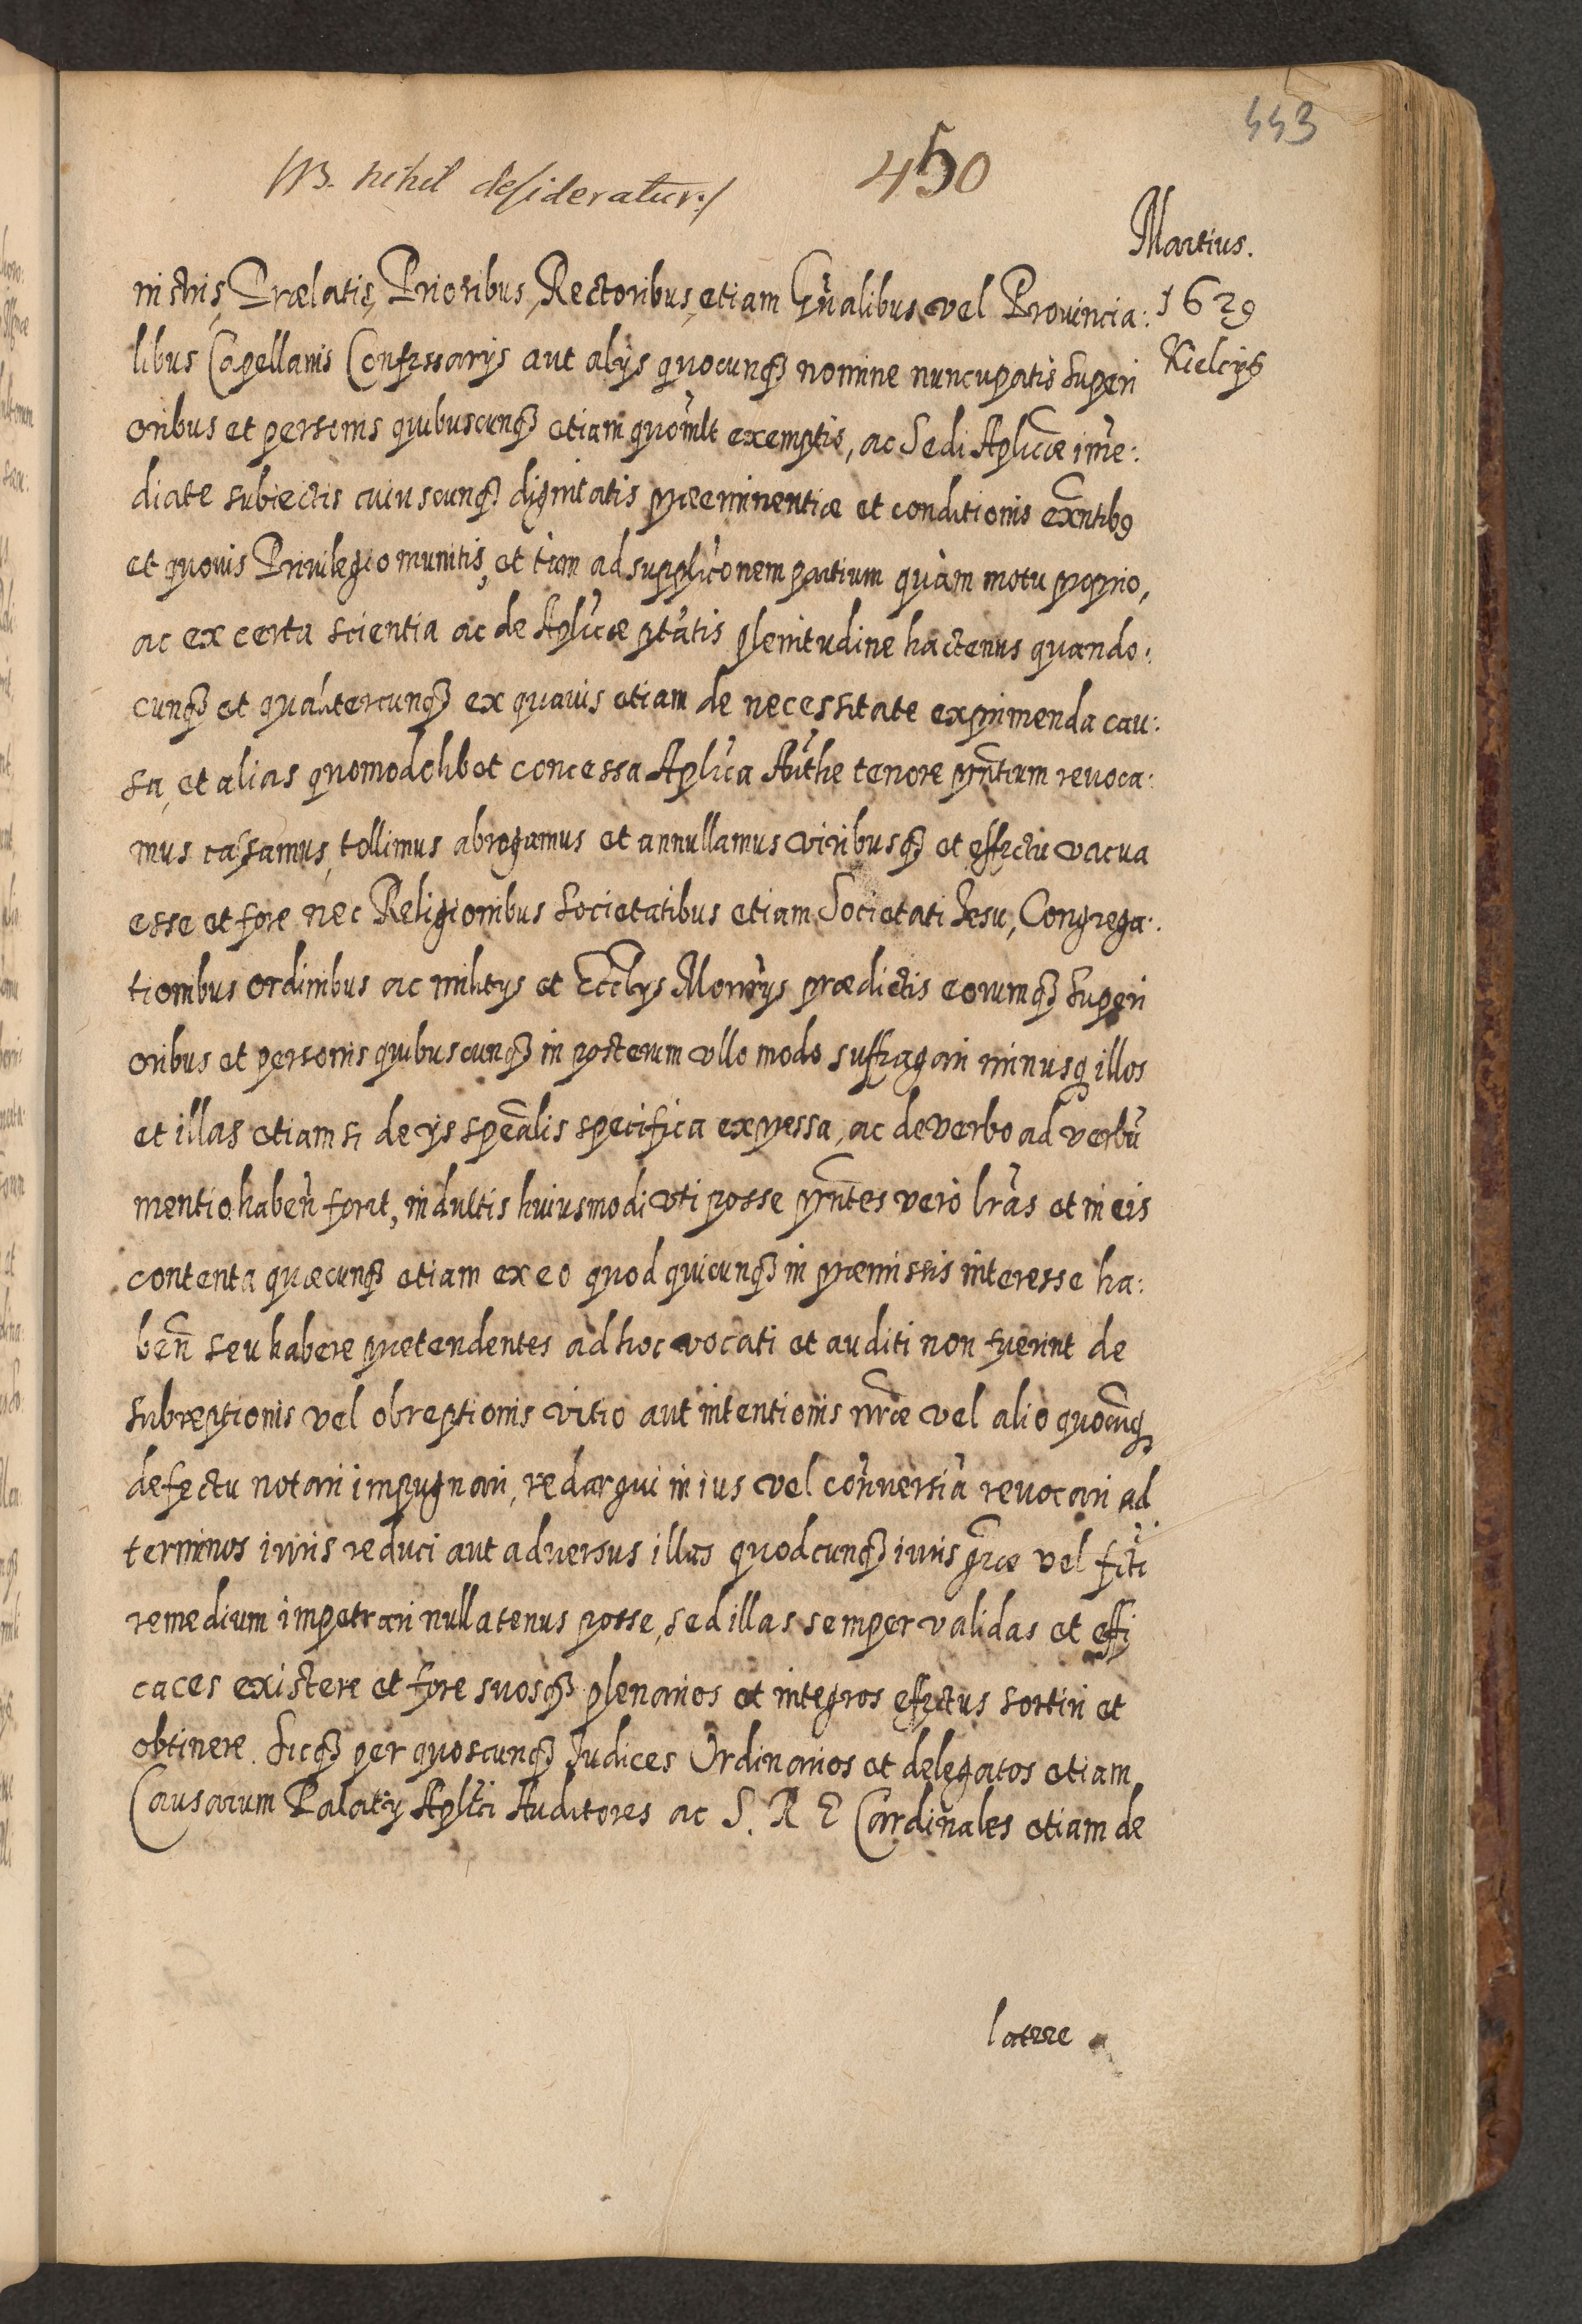 443
NB. nihil desideratur:/
450
Martius.
1629
Kielcys
nistris, Prælatis, Prioribus, Rectoribus, etiam Gñalibus vel Prouincia:
libus Capellanis Confessarys aut alys quocunq3 nomine nuncupatis Superi
oribus et personis quibuscunq3 etiam quomłt exemptis, ac Sedi Aplicæ ime:
diate subiectis cuiuscunq3 dignitatis præeminentiæ et conditionis exñtib9
et quouis Priuilegio munitis, et tàm ad supplicõnem partium quàm motu proprio,
ac ex certa scientia ac de Aplicæ ptãtis plenitudine hactenus quando:
cunq3 et qualitercunq3 ex quauis etiam de necessitate exprimenda cau:
sa, et alias quomodolibet concessa Aplica Authe tenore pñtium reuoca:
mus cassamus, tollimus abrogamus et annullamus viribusq3 et effectu vacua
esse et fore nec Religionibus Societatibus etiam Societati Jesu, Congrega:
tionibus ordinibus ac militys et Ecclys Monrys prædictis eorumq3 Superi
oribus et personis quibuscunq3 in posterum vllo modo suffragari minusq illos
et illas etiam si de ys speãlis specifica expressa, ac de verbo ad verbũ
mentio habeñ foret, indultis huiusmodi vti posse pñtes vero lrãs et in eis
contenta quæcunq3 etiam ex eo quod quicunq3 in præmissis interesse ha:
beñ seu habere prætendentes ad hoc vocati et auditi non fuerint de
subreptionis vel obreptionis vitio aut intentionis nrãe vel alio quocũq3
defectu notari impugnari, redargui in ius vel conuersiã reuocari ad
terminos iuris reduci aut aduersus illas quodcunq3 iuris grãe vel fcti
remedium impetrari nullatenus posse, sed illas semper validas et effi
caces existere et fore suosq3 plenarios et integros effectus sortiri et
obtinere. Sicq3 per quoscunq3 Judices Ordinarios et delegatos etiam
Causarum Palaty Aplici Auditores ac S. R E Cardinales etiam de
latere